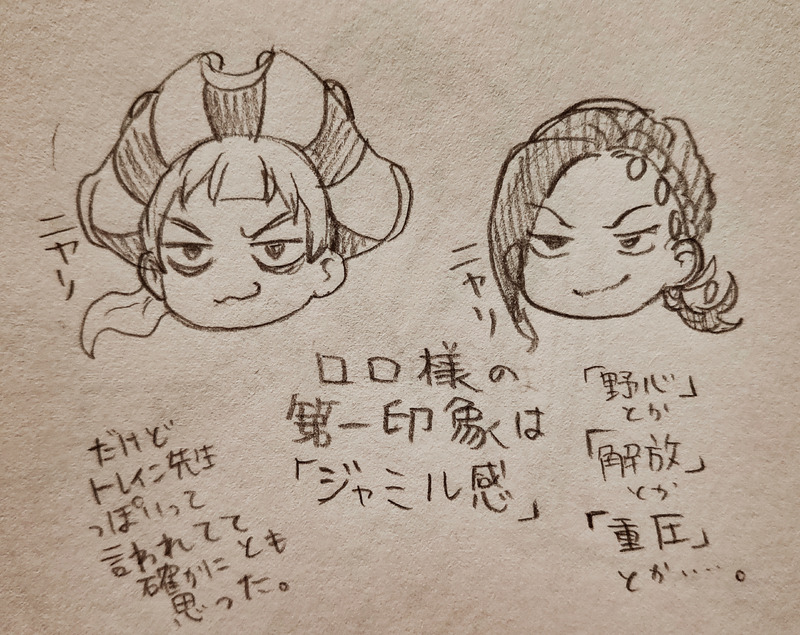 ニヤリ
ニヤリ
ロロ様の
第一印象は
「ジャミル感」
「野心」
とか
「解放」
とか
「重圧」
とか……。
だけど
トレイン先生
っぽいって
言われてて
確かにとも
思った。